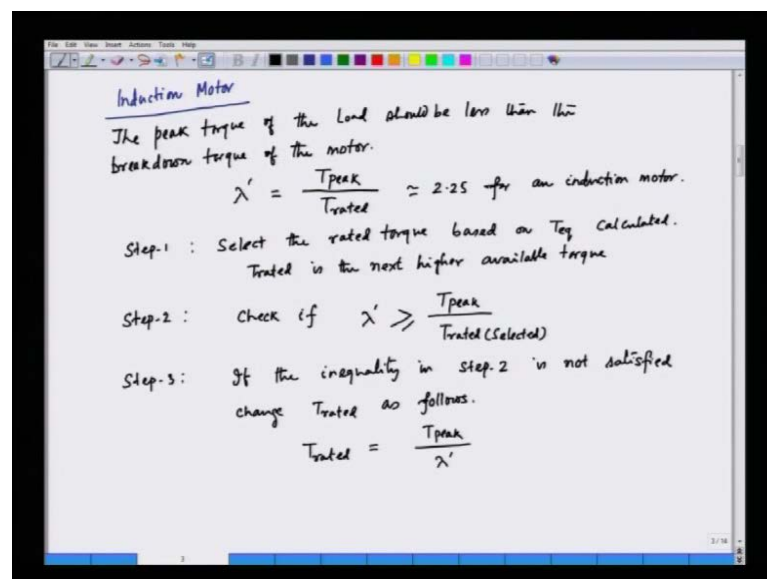 File Edit View Insert Actions Tools Help
Induction Motor
The peak torque of the Load should be less than the
breakdown torque of the motor.
λ' = Tpeak / Trated ≃ 2.25 for an induction motor.
Step-1 : Select the rated torque based on Teq Calculated.
Trated is the next higher available torque
Step-2 : Check if λ' ⩾ Tpeak / Trated (Selected)
Step-3 : If the inequality in step.2 is not satisfied
change Trated as follows.
Trated = Tpeak / λ'
3/14
3